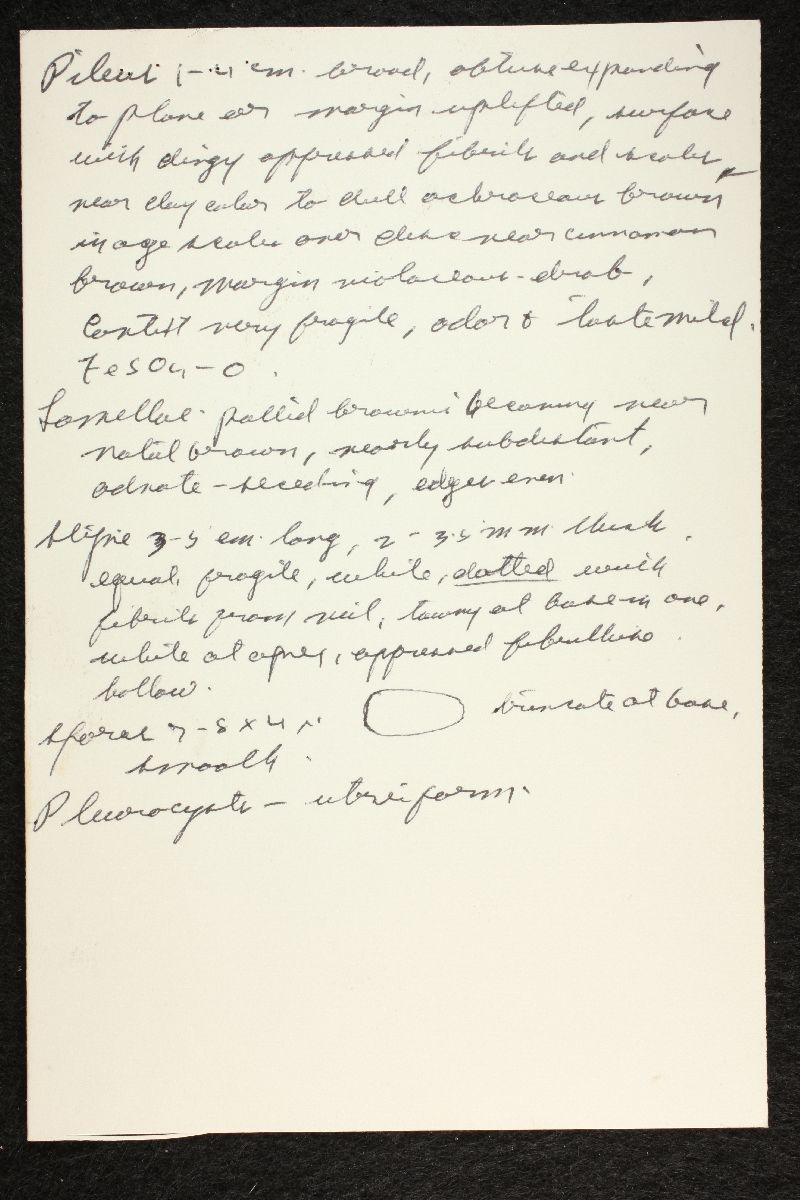 Pileus 1-4 cm. broad, obtuse expanding
to plane or margin uplifted, surface
with dingy appressed fibrils and scales
near clay color to dull ochraceous brown
in age scales over disc near cinnamon
brown, margin violaceous-drab,
Context very fragile, odor & taste mild.
FeSO4 - O.
Lamellae pallid brown becoming near
natal brown, nearly subdistant,
adnate-seceding, edges even.
Stipe 3-5 cm. long, 2-3.5 mm. thick.
equal, fragile, white, dotted with
fibrils from veil, tawny at base in one,
white at apex, appressed fibrillose.
hollow.
Spores 7-8 x 4 µ. truncate at base,
smooth.
Pleurocysts - utriform.